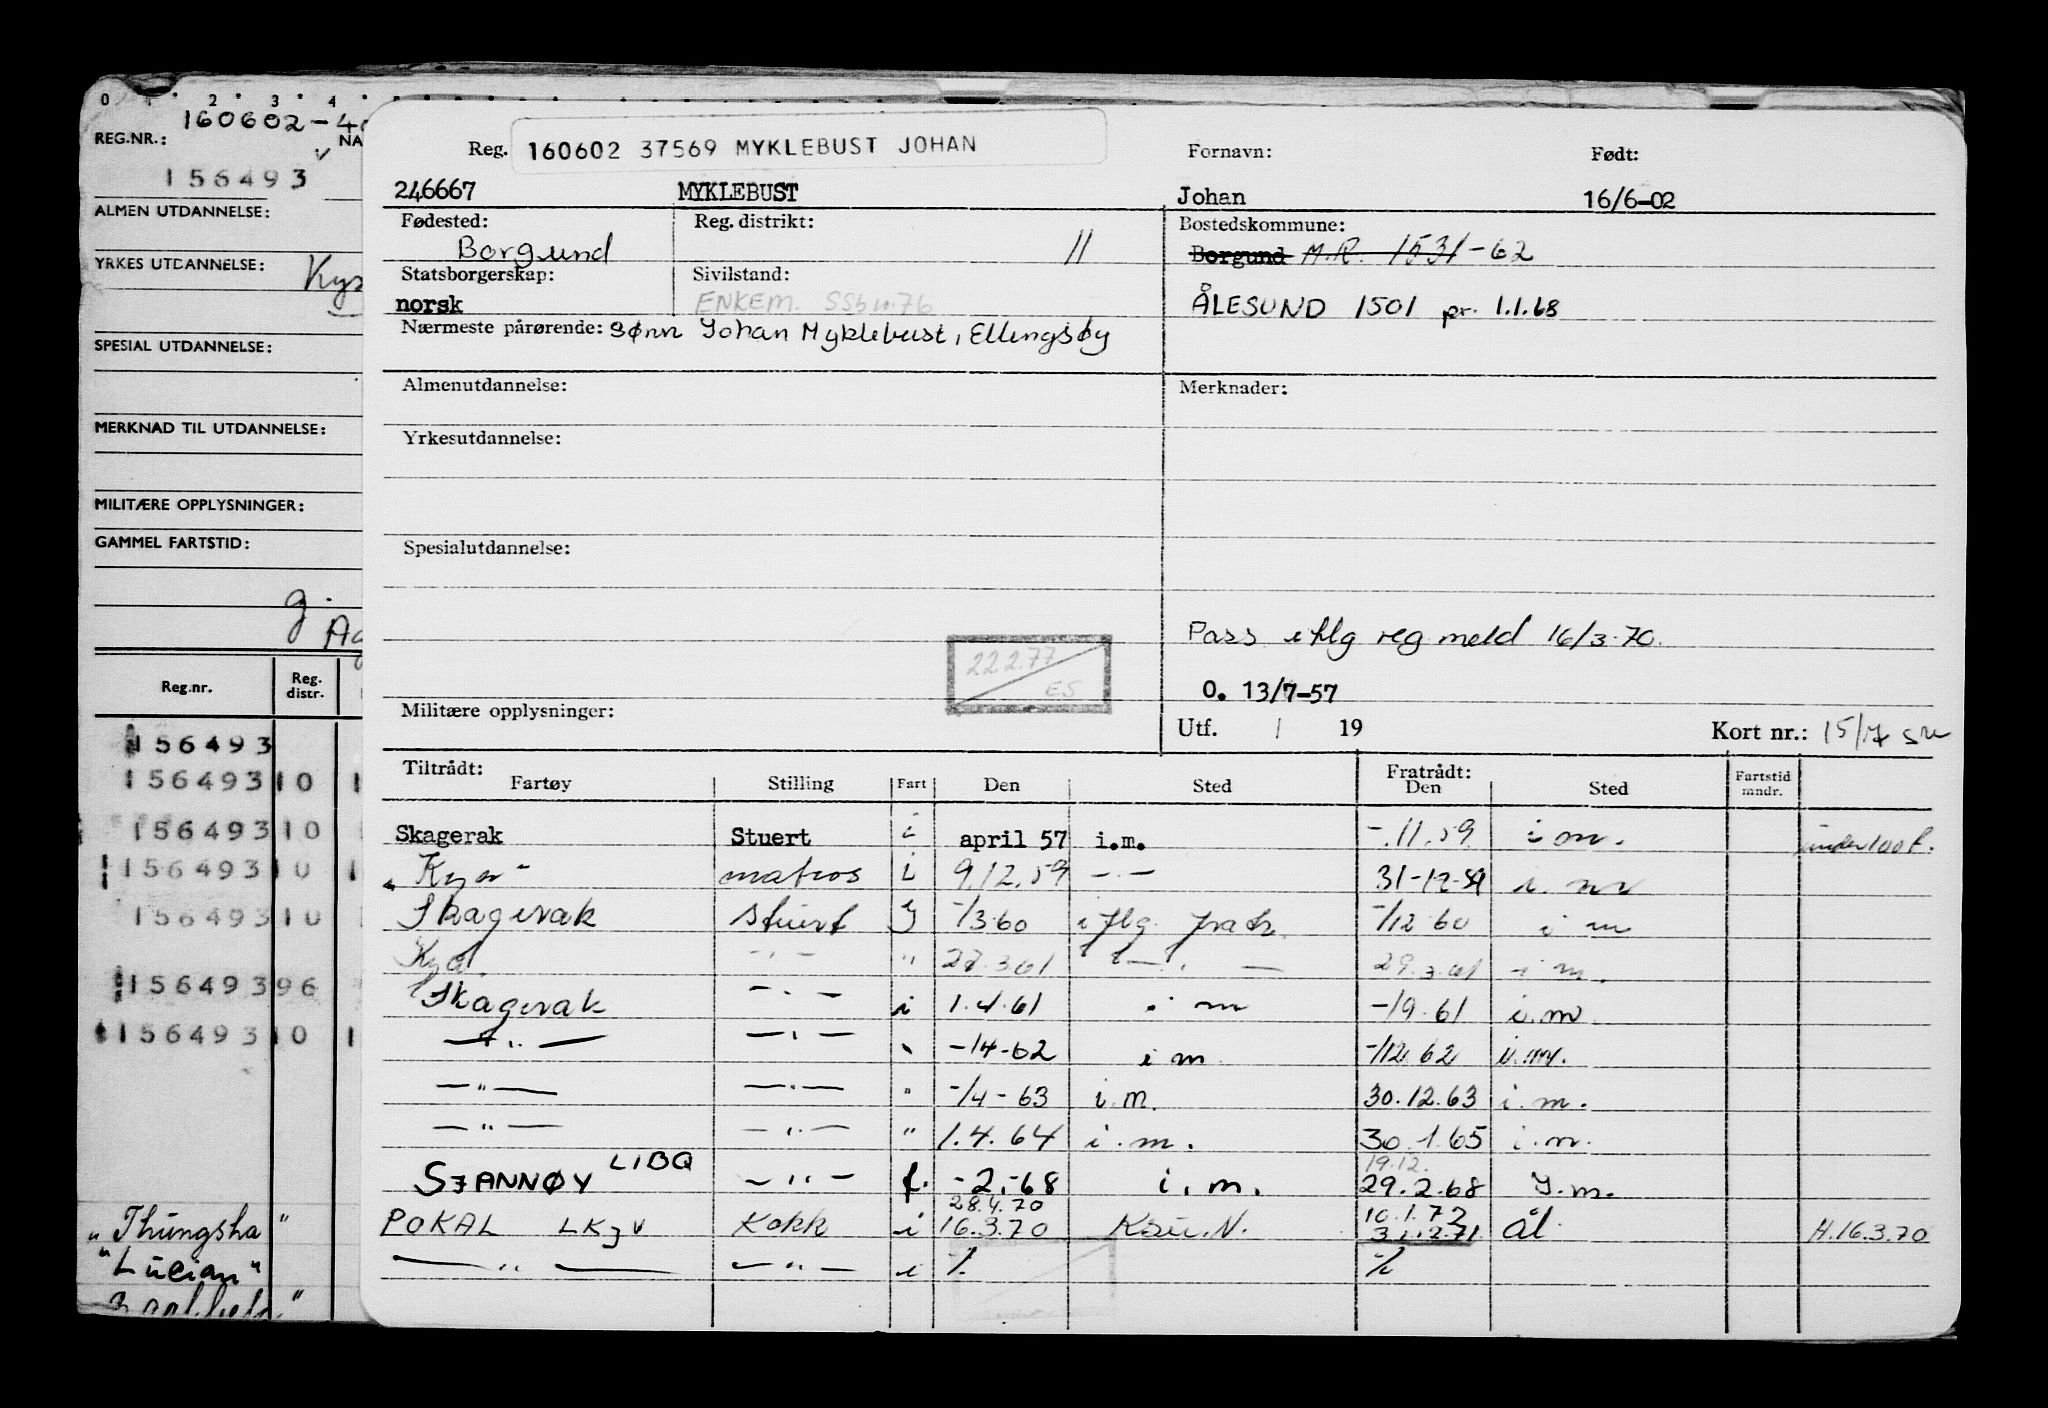 0 1 2 3 4
160602-4
REG.NR.: NA
156493
ALMEN UTDANNELSE:
YRKES UTDANNELSE:
SPESIAL UTDANNELSE:
MERKNAD TIL UTDANNELSE:
MILITÆRE OPPLYSNINGER:
GAMMEL FARTSTID:
g.
Reg.nr. Reg. distr.
156493
156493 10 1
156493 10
156493 10 1
156493 10
156493 96
156493 10 1
"Thungsha"
"Lucian"
Reg. 160602 37569 MYKLEBUST JOHAN Fornavn: Født:
246667 MYKLEBUST Johan 16/6-02
Fødested: Reg. distrikt: Bostedskommune:
Borgund 11 Borgund M.R. 1531-62
Statsborgerskap: Sivilstand:
norsk ENKEM. SSb n.76 ÅLESUND 1501 pr. 1.1.68
Nærmeste pårørende: Sønn Johan Myklebust, Ellingsøy
Almenutdannelse: Merknader:
Yrkesutdannelse:
Spesialutdannelse:
Pass iflg reg meld 16/3.70.
22.2.77 ES
O. 13/7-57
Militære opplysninger: Utf. / 19 Kort nr.: 15/7
Tiltrådt: Fratrådt:
Fartøy Stilling Fart Den Sted Den Sted Fartstid mndr.
Skagerak Stuert i april 57 i.m. -.11.59 i m. under 100 t.
matros i 9.12.59 -"- 31-12-59 i. m
Skagerak Stuert -/3.60 iflg. -/12 60 i m
-"- " 29.3.61 i m.
Skagerak -"- i 1.4.61 i m -/9.61 i.m.
-"- -"- -/4-62 i m. -/12.62 i.m.
-"- -"- " -/4-63 i.m. 30.12.63 i.m.
-"- -"- " 1.4.64 i.m. 30.1.65 i.m.
LIBQ 19.12.
-"- f. -2.-68 i.m. 29.2.68 I.m.
28.4.70 10.1.72
POKAL Kokk i 16.3.70 Krsu.N. ål H.16.3.70
-"- -"- i % %